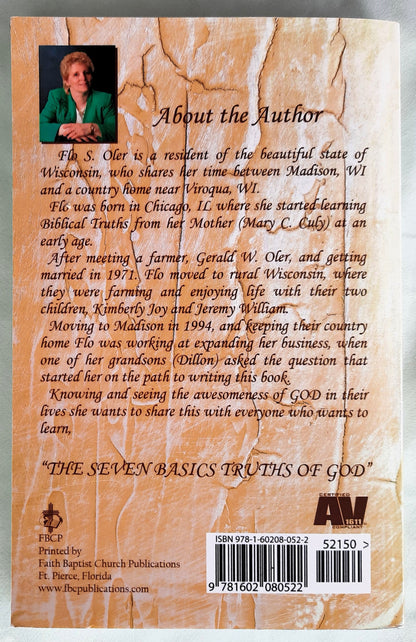 About the Author
Flo S. Oler is a resident of the beautiful state of
Wisconsin, who shares her time between Madison, WI
and a country home near Viroqua, WI.
Flo was born in Chicago, IL where she started learning
Biblical Truths from her Mother (Mary C. Culy) at an
early age.
After meeting a farmer, Gerald W. Oler, and getting
married in 1971. Flo moved to rural Wisconsin, where
they were farming and enjoying life with their two
children, Kimberly Joy and Jeremy William.
Moving to Madison in 1994, and keeping their country
home Flo was working at expanding her business, when
one of her grandsons (Dillon) asked the question that
started her on the path to writing this book.
Knowing and seeing the awesomeness of GOD in their
lives she wants to share this with everyone who wants to
learn,
"THE SEVEN BASICS TRUTHS OF GOD"
FBCP
Printed by
Faith Baptist Church Publications
Ft. Pierce, Florida
www.fbcpublications.com
CERTIFIED
AV
1611
COMPLIANT
ISBN 978-1-60208-052-2
52150 >
9 781602 080522